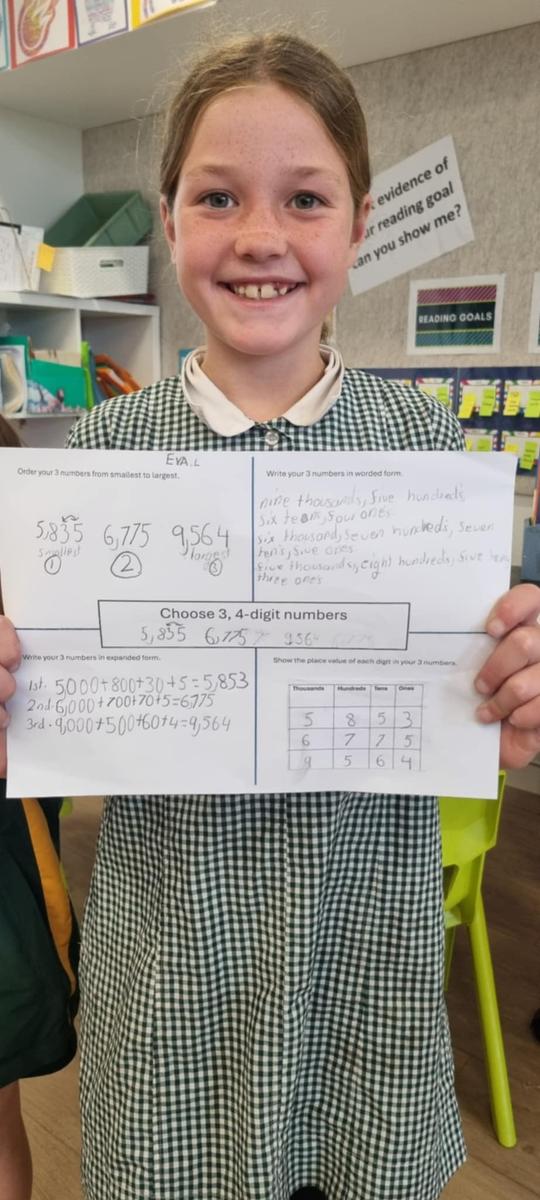 evidence of
ur reading goal
can you show me?
READING GOALS
EVA.L
Order your 3 numbers from smallest to largest.
5,835 6,775 9,564
smallest largest
1 2 3
Write your 3 numbers in worded form.
nine thousands, five hundreds,
six tens, four ones.
six thousand, seven hundreds, seven
ten's, five ones.
five thousands, eight hundreds, five tens
three ones
Choose 3, 4-digit numbers
5,835 6,775 9564
Write your 3 numbers in expanded form.
1st. 5000+800+30+5=5,853
2nd 6,000+700+70+5=6,775
3rd. 9,000+500+60+4=9,564
Show the place value of each digit in your 3 numbers.
Thousands Hundreds Tens Ones
5 8 5 3
6 7 7 5
9 5 6 4